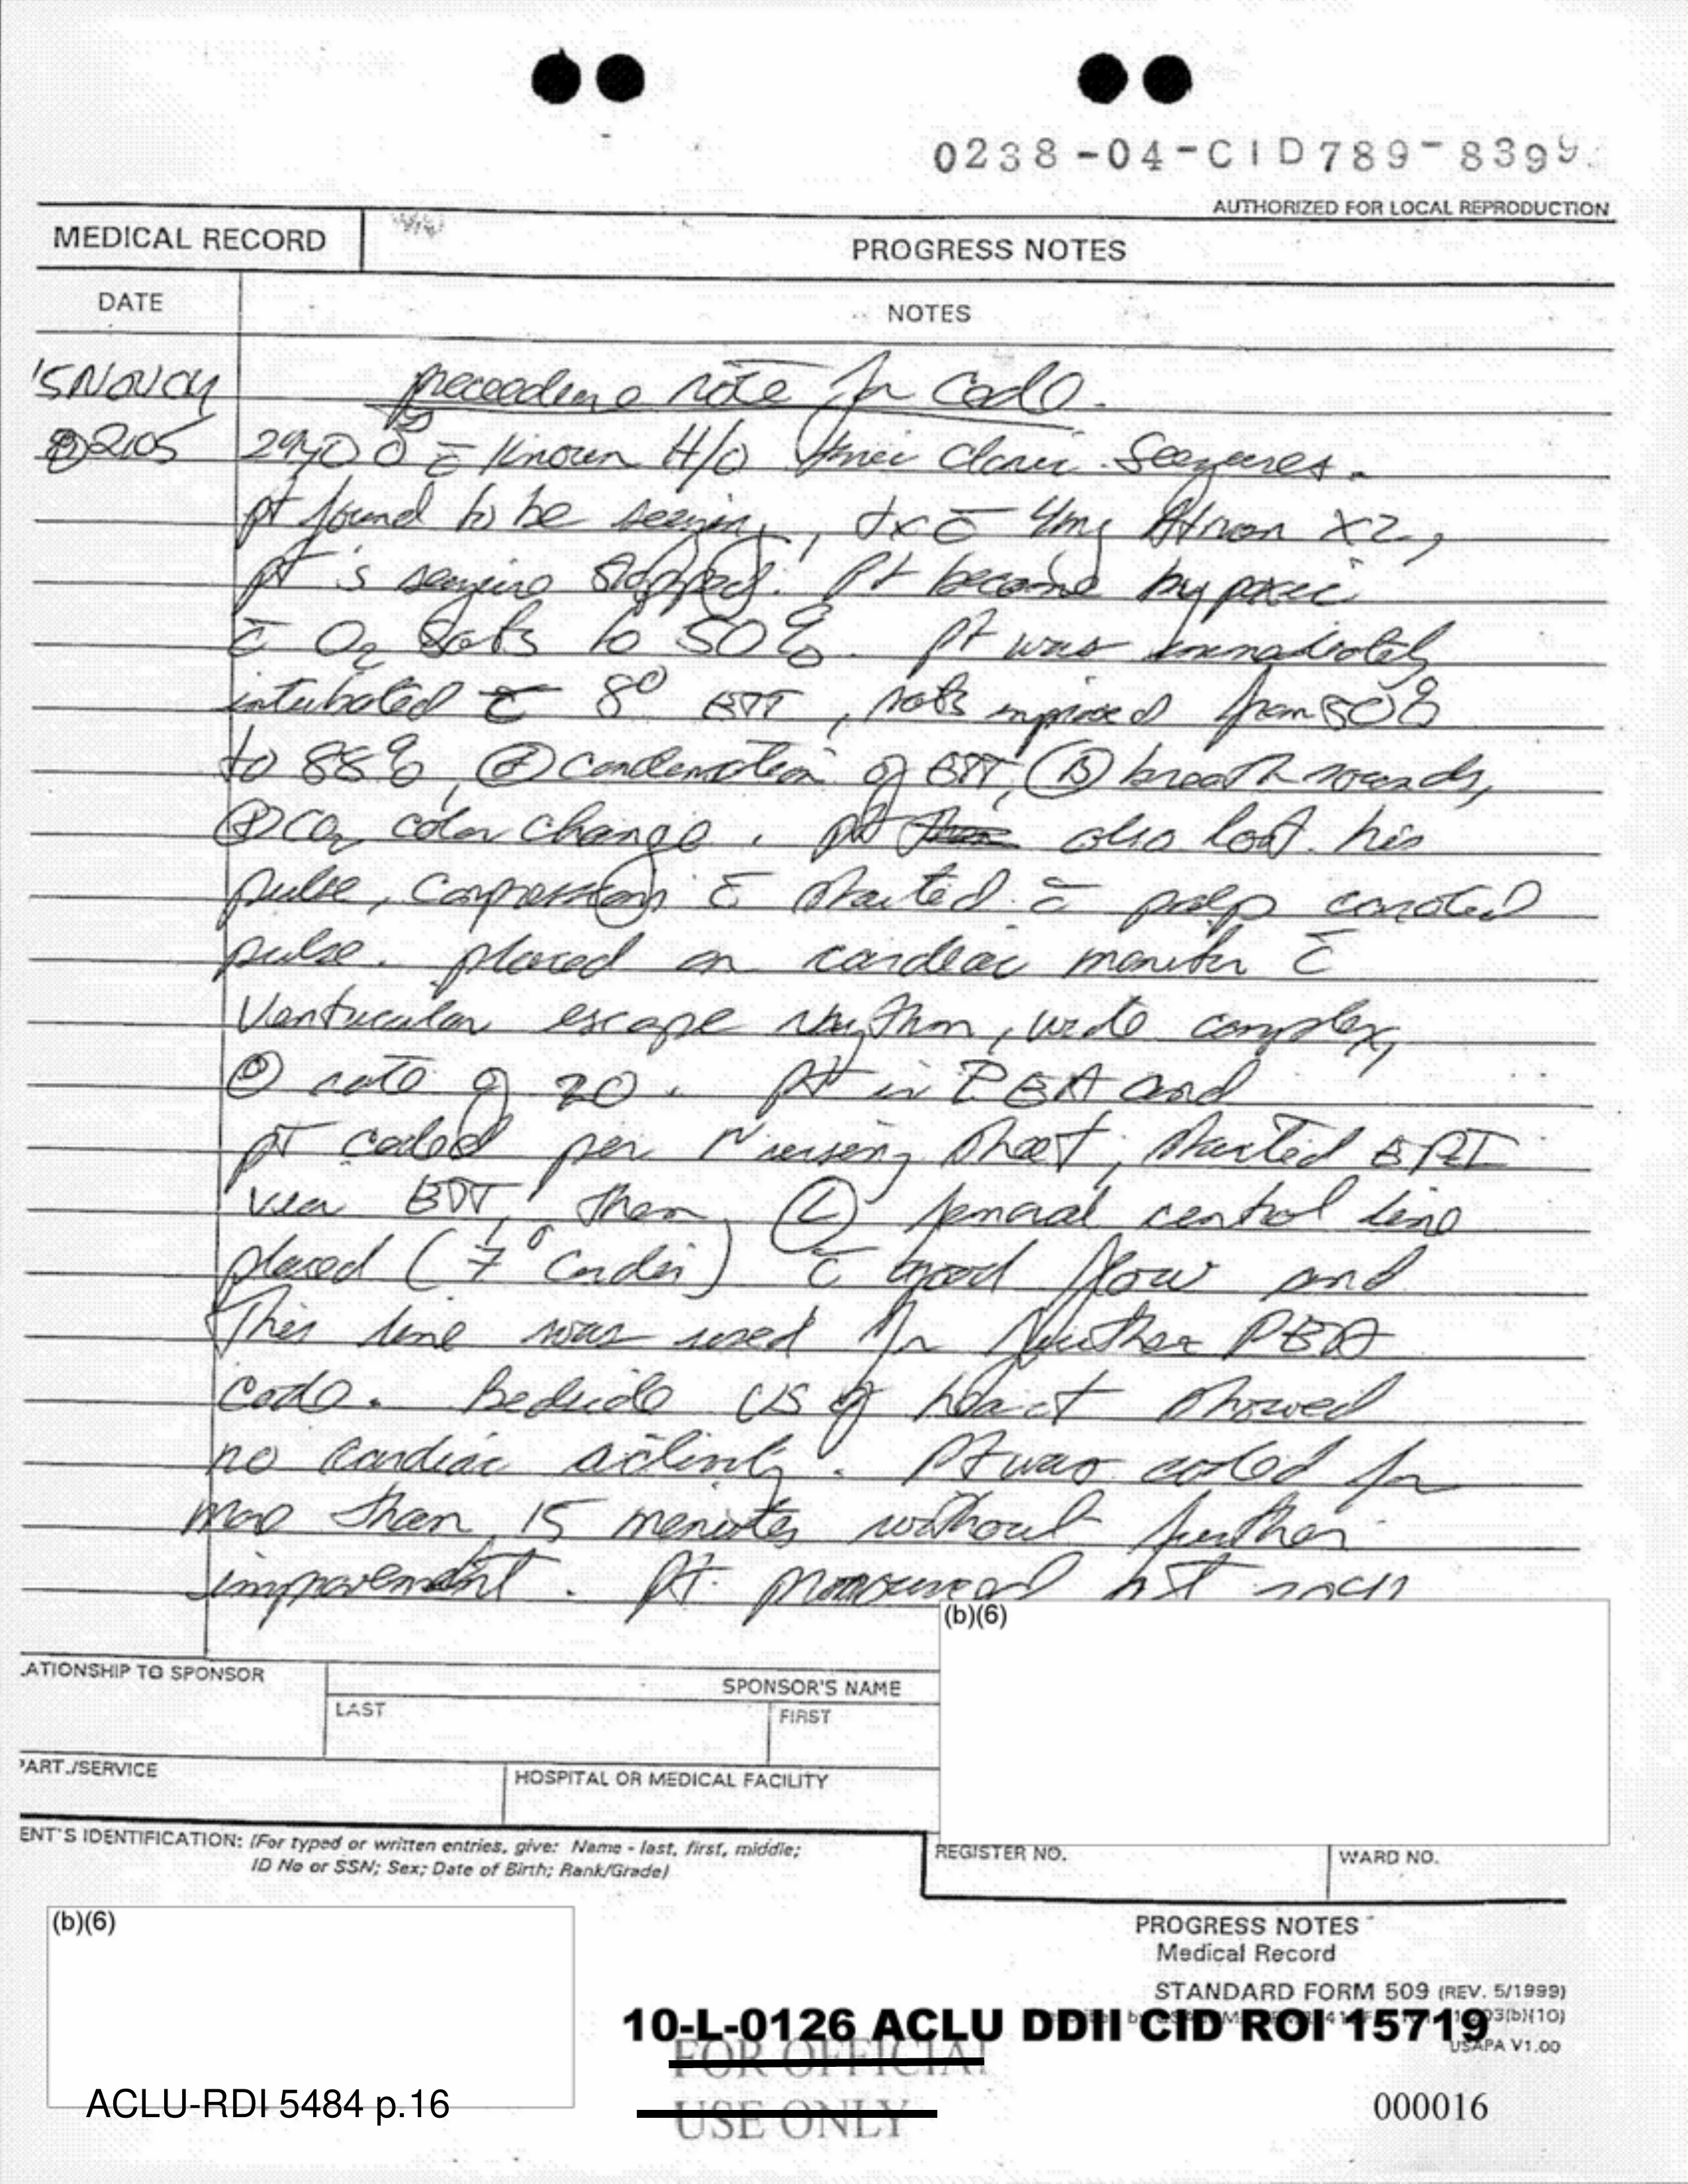 0238-04-CID789-8399
AUTHORIZED FOR LOCAL REPRODUCTION
MEDICAL RECORD
PROGRESS NOTES
DATE
NOTES
15NOV04
note for Code.
@2105 29yo ♂ c̄ known H/O Seizures.
pt found to be seizing, tx c̄ 4mg Ativan X2,
pt's seizure stopped. Pt became hypoxic
c̄ O2 Sats to 50%. Pt was immediately
intubated c̄ 8° ETT, sats improved from 50%
to 88%, ⊕ condensation of ETT, Ⓑ breath sounds,
⊕ CO2 color change. pt also lost his
pulse, compressions started c̄ palp carotid
pulse. placed on cardiac monitor c̄
Ventricular escape rhythm, wide complex,
rate of 20. Pt in PEA and
pt coded per nursing sheet, started EPI
via ETT, then Ⓛ femoral central line
placed (7° Cordis) c̄ good flow and
This line was used for further PEA
Code. Bedside US of heart showed
no cardiac activity. Pt was coded for
more than 15 minutes without further
improvement. Pt. pronounced at
(b)(6)
ATIONSHIP TO SPONSOR
SPONSOR'S NAME
LAST
FIRST
PART./SERVICE
HOSPITAL OR MEDICAL FACILITY
ENT'S IDENTIFICATION: (For typed or written entries, give: Name - last, first, middle;
ID No or SSN; Sex; Date of Birth; Rank/Grade)
REGISTER NO.
WARD NO.
(b)(6)
PROGRESS NOTES
Medical Record
STANDARD FORM 509 (REV. 5/1999)
10-L-0126 ACLU DDII CID ROI 15719
USAPA V1.00
FOR OFFICIAL
USE ONLY
ACLU-RDI 5484 p.16
000016